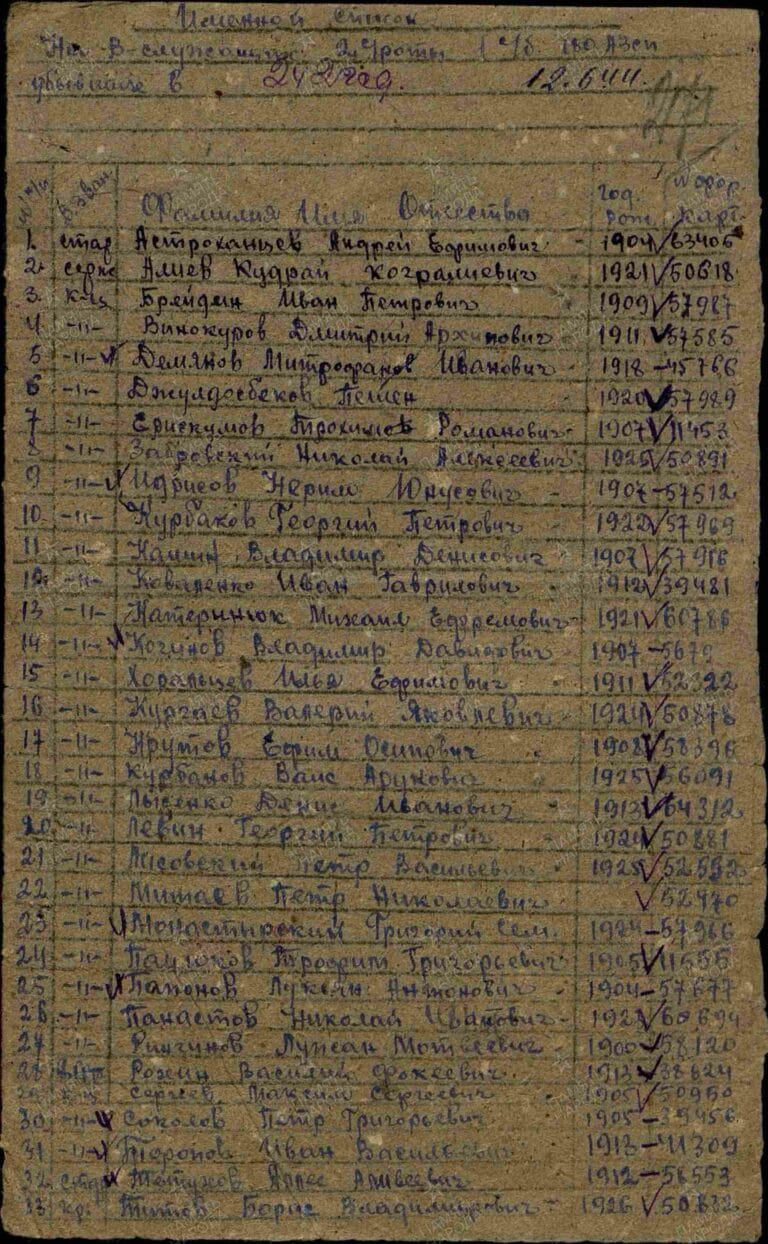 Именной список
На В-служащих 2й роты 1 180 АЗСП
убывшие в 24 12.6.44.
в. зван. Фамилия Имя Отчество год рож. карт.
1. стар Астроханцев Андрей Ефимович 1904 63406
2. серж Алиев Кудрай 1921 50618
3. к-ц Брейдин Иван Петрович 1909 57987
4 -"- Винокуров Дмитрий Архипович 1911 57585
5 -"- Демянов Митрофанов Иванович 1918 45766
6 -"- Джулдосбеков 1920 57989
7 -"- Ерискумов Трохимов Романович 1907 11453
8 -"- Забровский Николай Алексеевич 1925 50891
9 -"- Идрисов Керим Юнусович 1907 57512
10 -"- Курбаков Георгий Петрович 1922 57969
11 -"- Владимир Денисович 1907 57916
12 -"- Коваленко Иван Гаврилович 1912 39481
13 -"- Катеринюк Михаил Ефремович 1921 60786
14 -"- Когинов Владимир Давидович 1907
15 -"- Хоральцев Илья Ефимович 1911 52322
16 -"- Кургаев Валерий Яковлевич 1924 50878
17 -"- Крутов Ефим Осипович 1908 58396
18 -"- Курбанов Ваис 1925 56091
19 -"- Лысенко Денис Иванович 1913 64312
20 -"- Левин Георгий Петрович 1924 50881
21 -"- Лисовский Петр Васильевич 1925 52552
22 -"- Митаев Петр Николаевич 52970
23 -"- Монастырский Григорий Сем. 1924 57966
24 -"- Пацюков Трофим Григорьевич 1905 11555
25 -"- Папонов Лукьян Антонович 1904 57677
26 -"- Панастов Николай Иванович 1921 60694
27 -"- Ринчинов Лупсан Мотвеевич 1900 58120
28 Рожин Василий Фокеевич 1913 38824
29 к-ц Сергеев Максим Сергеевич 1905 50950
30 -"- Соколов Петр Григорьевич 1905 39456
31 -"- Торопов Иван Васильевич 1913 41309
32 1912 58553
33 кр. Титов Борис Владимирович 1926 50832